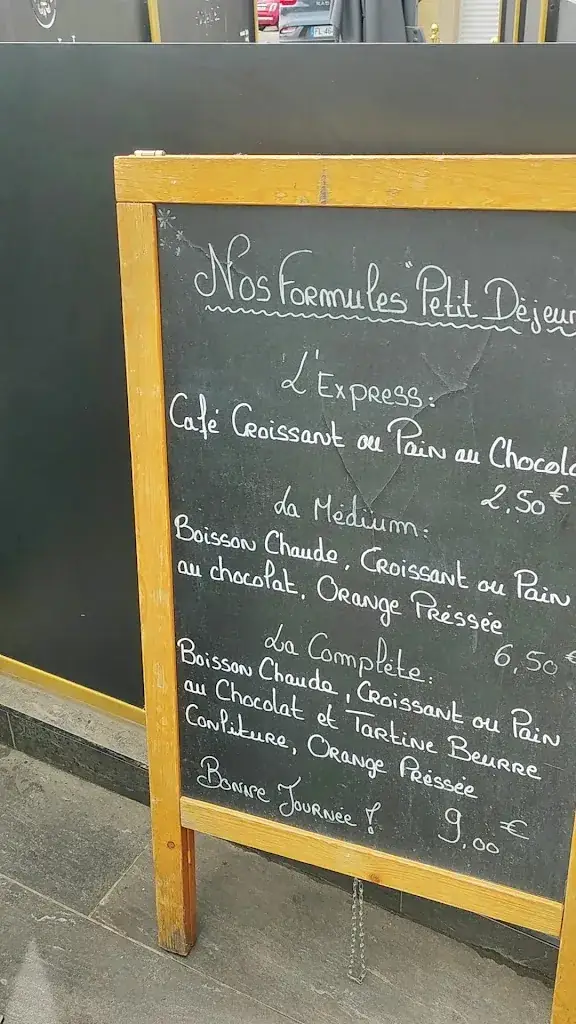 Nos Formules "Petit Déjeun
L'Express:
Café Croissant ou Pain au Chocola
2,50 €
La Médium:
Boisson Chaude, Croissant ou Pain
au chocolat, Orange Préssée
6,50 €
La Complète:
Boisson Chaude, Croissant ou Pain
au Chocolat et Tartine Beurre
Confiture, Orange Préssée
Bonne Journée !
9,00 €